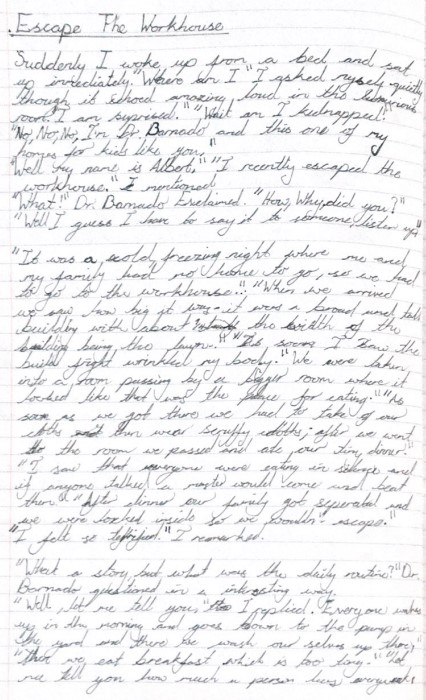 Escape The Workhouse
Suddenly I woke up from a bed and sat
up immediately. "Where am I" I asked myself quietly
though it echoed amazing loud in the
room. I am suprised." "Wait am I kidnapped!"
"No, No, No, I'm Dr. Barnado and this one of my
homes for kids like you."
"Well my name is Albert," "I recently escaped the
workhouse." I mentioned.
"What!" Dr. Barnado Exclaimed. "How, Why, did you?"
"Well I guess I have to say it to someone, listen up"
"It was a cold, freezing night where me and
my family had no home to go, so we had
to go to the workhouse." "When we arrived
we saw how big it was - it was a broad and tall
building with about the width of the
building being the layer." "As soon I saw the
build fright wrinkled my body." "We were taken
into a room passing by a bigger room where it
looked like that was the place for eating." "As
soon as we got there we had to take of our
cloths and then wear scruffy cloths; after we went
to the room we passed and ate our tiny dinner."
"I saw that everyone were eating in silence and
if anyone talked a master would come and beat
them." "After dinner our family got seperated and
we were locked inside so we wouldn't escape."
"I felt so" I remarked.
"What a story, but what was the daily routine?" Dr.
Barnado questioned in a interesting way.
"Well, let me tell you," I replied. "Everyone wakes
up in the morning and goes down to the pump in
the yard and there we wash our selves up there,"
"then we eat breakfast which is too long." "Let
me tell you how much a person